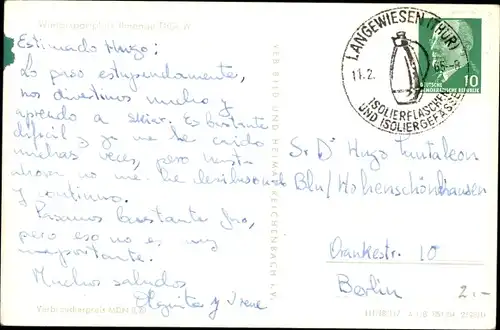 Estimado Hugo:
Lo paso estupendamente,
nos divertimos mucho y
aprendo a skier. Es bastante
difícil y ya me he caido
muchas veces, pero hasta
ahora no me he
y continuo.
Pasamos bastante frio,
pero eso no es muy
importante.
Muchos saludos
Olguita y Irene
VEB BILD UND HEIMAT REICHENBACH I. V.
LANGEWIESEN (THÜR)
11.2. 65-8
ISOLIERFLASCHEN
UND ISOLIERGEFÄSSE
10
DEUTSCHE
DEMOKRATISCHE REPUBLIK
Sr Dn Hugo Pantaleon
Bln/Hohenschönhausen
Orankestr. 10
Berlin
2.-